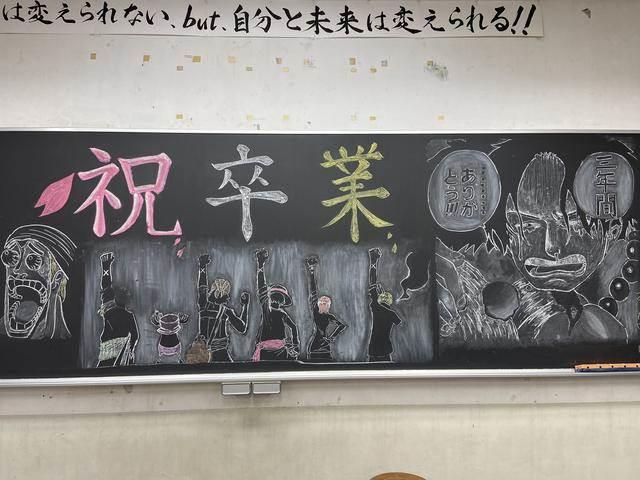 は変えられない、but、自分と未来は変えられる!!
祝卒業
三年間
ありが
とう!!